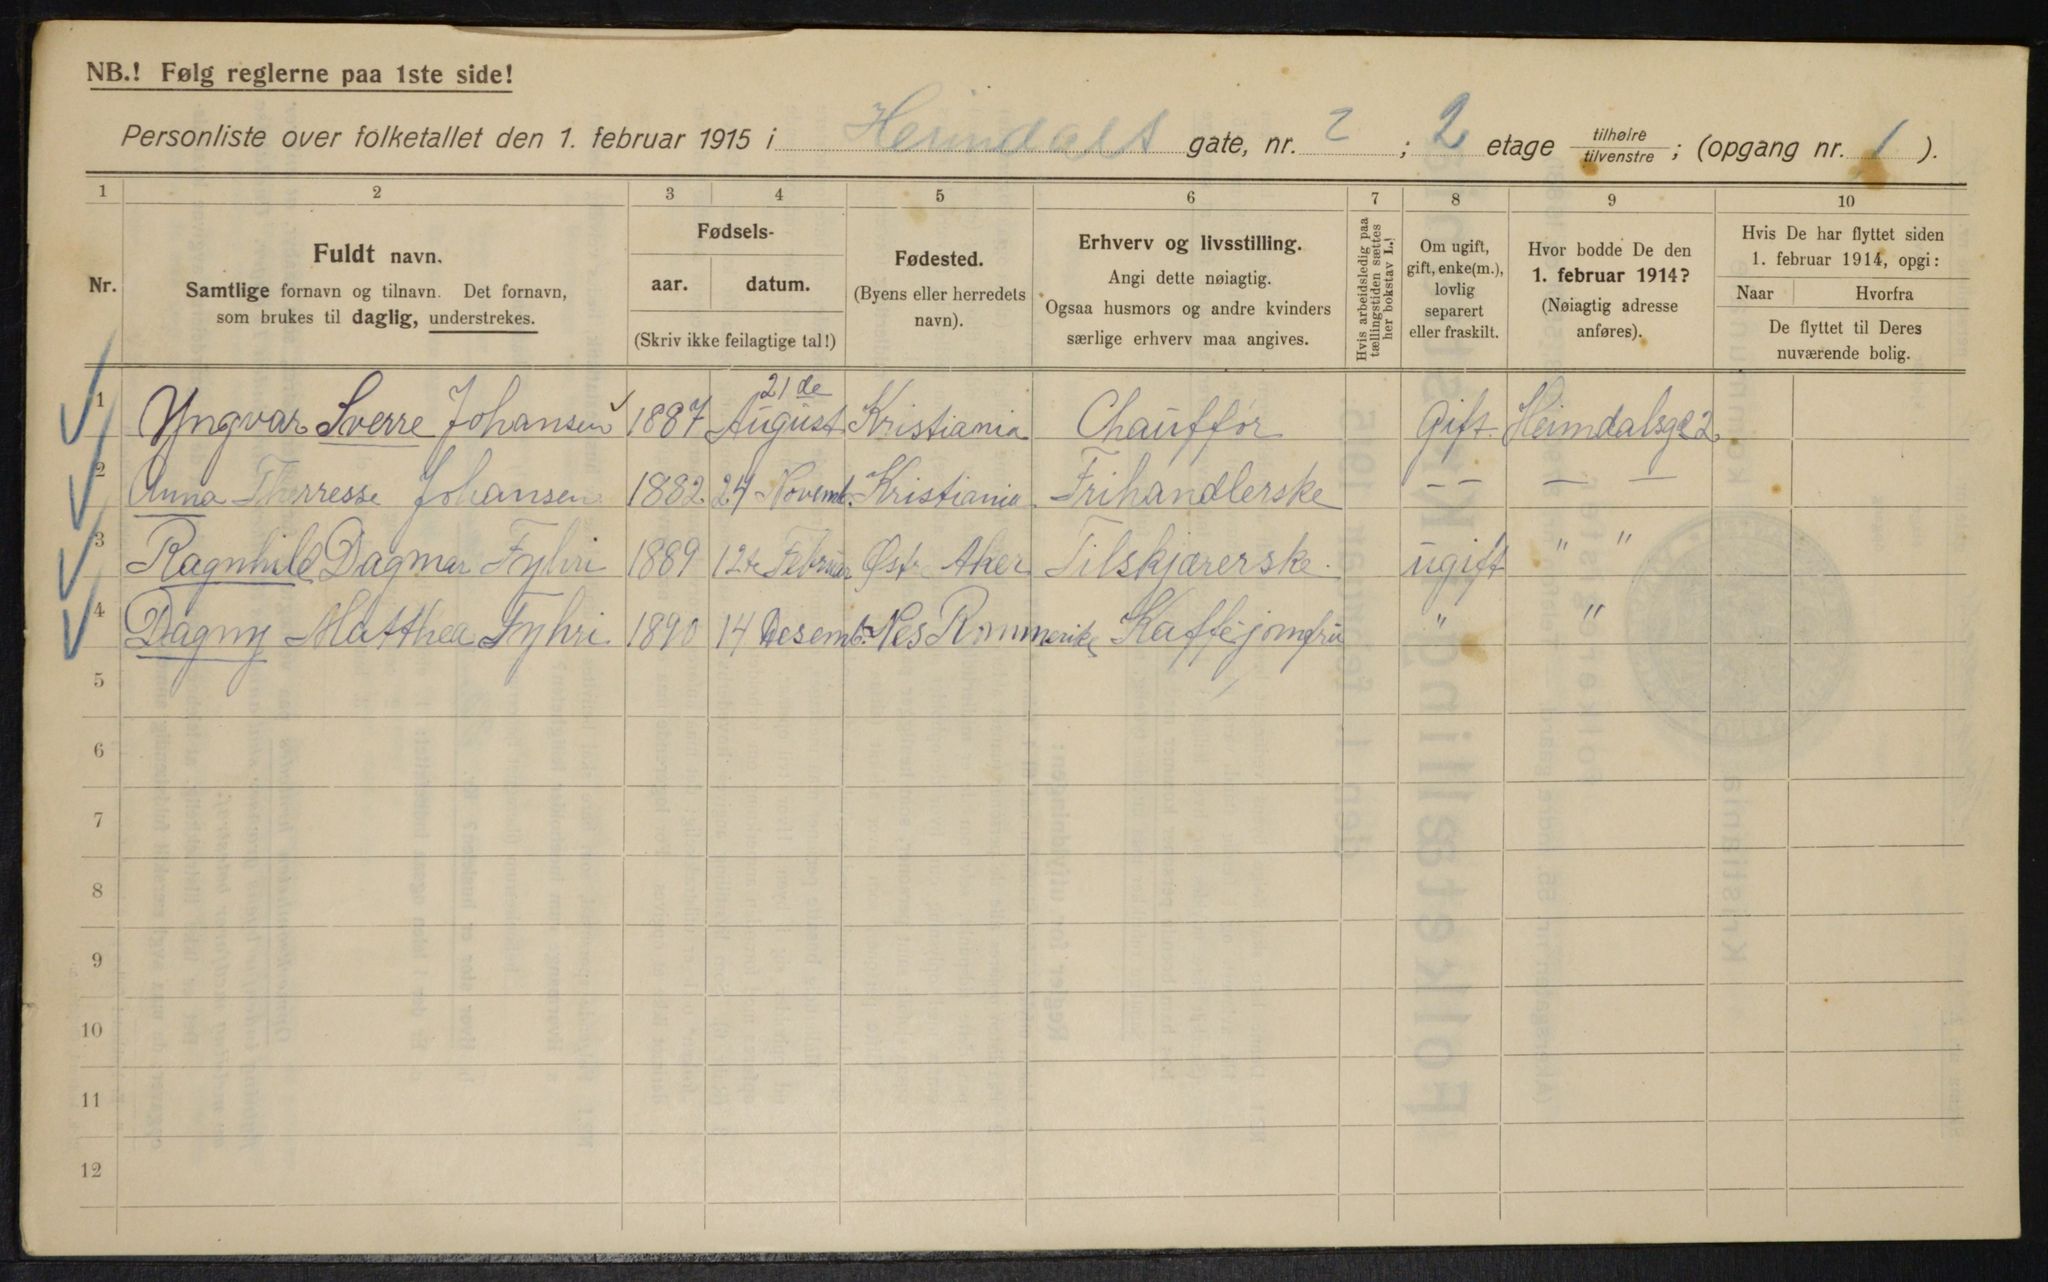 NB.! Følg reglerne paa 1ste side!
Personliste over folketallet den 1. februar 1915 i Heimdals gate, nr. 2 ; 2 etage tilhøire / tilvenstre ; (opgang nr. 1 ).
1 2 3 4 5 6 7 8 9 10
Nr.
Fuldt navn.
Samtlige fornavn og tilnavn. Det fornavn,
som brukes til daglig, understrekes.
Fødsels-
aar. datum.
(Skriv ikke feilagtige tal!)
Fødested.
(Byens eller herredets
navn).
Erhverv og livsstilling.
Angi dette nøiagtig.
Ogsaa husmors og andre kvinders
særlige erhverv maa angives.
Hvis arbeidsledig paa
tællingstiden sættes
her bokstav L.!
Om ugift,
gift, enke(m.),
lovlig
separert
eller fraskilt.
Hvor bodde De den
1. februar 1914?
(Nøiagtig adresse
anføres).
Hvis De har flyttet siden
1. februar 1914, opgi:
Naar Hvorfra
De flyttet til Deres
nuværende bolig.
1 Yngvar Sverre Johansen 1887 21de August Kristiania Chauffør Gift Heimdalsg 2
2 Anna Therresse Johansen 1882 24 Novemb. Kristiania Frihandlerske — — — —
3 Ragnhild Dagmar Fyhri 1889 12te Februar Østr Aker Tilskjærerske ugift " "
4 Dagny Matthea Fyhri 1890 14 Desemb. Nes Rommerike Kaffejomfru " "
5
6
7
8
9
10
11
12